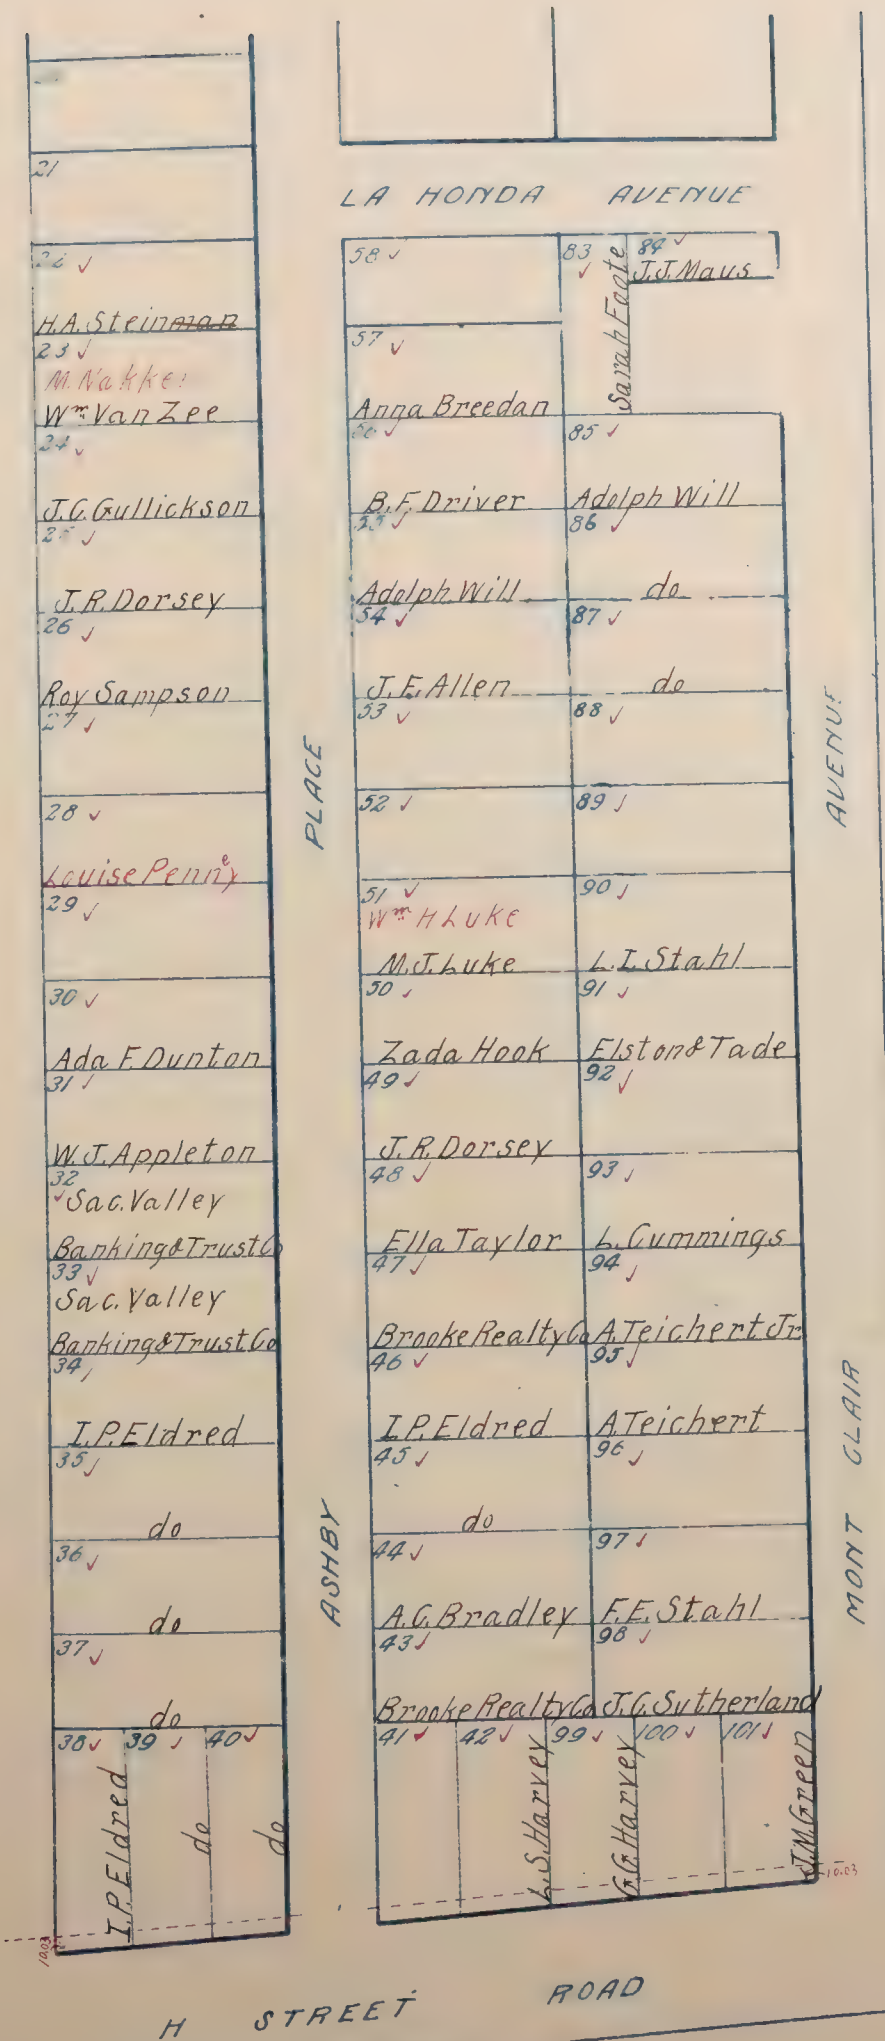 21
LA HONDA AVENUE
22 ✓
H.A. Steinman
23 ✓
Wm Van Zee
24 ✓
J.C. Gullickson
25 ✓
J.R. Dorsey
26 ✓
Roy Sampson
27 ✓
28 ✓
Louise Penney
29 ✓
30 ✓
Ada F. Dunton
31 ✓
W.J. Appleton
32
✓ Sac. Valley
Banking & Trust Co
33 ✓
Sac. Valley
Banking & Trust Co
34 ✓
I.P. Eldred
35 ✓
do
36 ✓
do
37 ✓
do
38 ✓ 39 ✓ 40 ✓
I.P. Eldred
do
do
10.03
ASHBY PLACE
58 ✓
57 ✓
Anna Breedan
56 ✓
B.F. Driver
55 ✓
Adolph Will
54 ✓
J.E. Allen
53 ✓
52 ✓
51 ✓
Wm H Luke
M.J. Luke
50 ✓
Zada Hook
49 ✓
J.R. Dorsey
48 ✓
Ella Taylor
47 ✓
Brooke Realty Co
46 ✓
I.P. Eldred
45 ✓
do
44 ✓
A.C. Bradley
43 ✓
Brooke Realty Co
41 ✓ 42 ✓
L.S. Harvey
83 ✓
Sarah Foote
84 ✓
J.J. Maus
85 ✓
Adolph Will
86 ✓
do
87 ✓
do
88 ✓
89 ✓
90 ✓
L.I. Stahl
91 ✓
Elston & Tade
92 ✓
93 ✓
L. Cummings
94 ✓
A. Teichert Jr
95 ✓
A Teichert
96 ✓
97 ✓
F.E. Stahl
98 ✓
J.C. Sutherland
99 ✓ 100 ✓ 101 ✓
G.G. Harvey
J.M. Green
10.03
MONT CLAIR AVENUE
H STREET ROAD